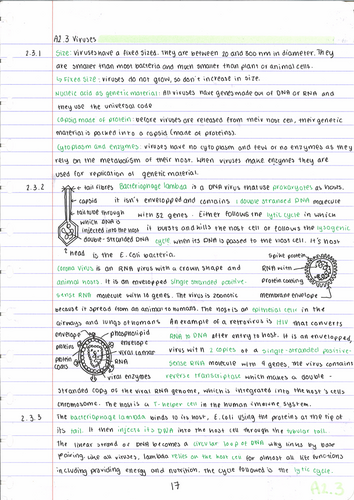 A2.3 Viruses
2.3.1 Size: Viruses have a fixed sized. They are between 20 and 300 nm in diameter. They
are smaller than most bacteria and much smaller than plant or animal cells.
↳ Fixed size: viruses do not grow, so don't increase in size.
Nucleic acid as genetic material: All viruses have genes made out of DNA or RNA and
they use the universal code
Capsid made of protein: before viruses are released from their host cell, their genetic
material is packed into a capsid (made of proteins).
Cytoplasm and enzymes: viruses have no cytoplasm and few or no enzymes as they
rely on the metabolism of their host. When viruses make enzymes they are
used for replication of genetic material.
2.3.2 tail fibres Bacteriophage lambda is a DNA virus that use prokaryotes as hows.
capsid It isn't enveloped and contains 1 double stranded DNA molecule
tail tube through with 32 genes. Either follows the lytic cycle in which
which DNA is
injected into the host it bursts and kills the host cell or follows the lysogenic
double-stranded DNA cycle when its DNA is passed to the host cell. It's host
head is the E.coli bacteria. Spike protein
Corona virus is an RNA virus with a crown shape and RNA with
animal hosts. It is an enveloped single stranded positive- protein coating
sense RNA molecule with 10 genes. The virus is zoonotic membrane envelope
because it spread from an animal to humans. The host is an epithelial cell in the
airways and lungs of humans An example of a retrovirus is HIV that converts
envelope phospholipid RNA to DNA after entry to host. It is an enveloped
proteins envelope virus with 2 copies of a single-stranded positive-
viral capsid sense RNA molecule with 9 genes. The virus contains
protein coats RNA reverse transcriptase which makes a double-
viral enzymes
stranded copy of the viral RNA genome, which is integrated into the host's cells
chromosome. The host is a T-helper cell in the human immune system.
2.3.3 The bacteriophage lambda binds to its host, E.coli using the proteins at the tip of
its tail. It then injects its DNA into the host cell through the tubular tail.
The linear strand of DNA becomes a circular loop of DNA by links by base
pairing. Like all viruses, lambda relies on the host cell for almost all life functions
including providing energy and nutrition. The cycle followed is the lytic cycle.
17
A2.3